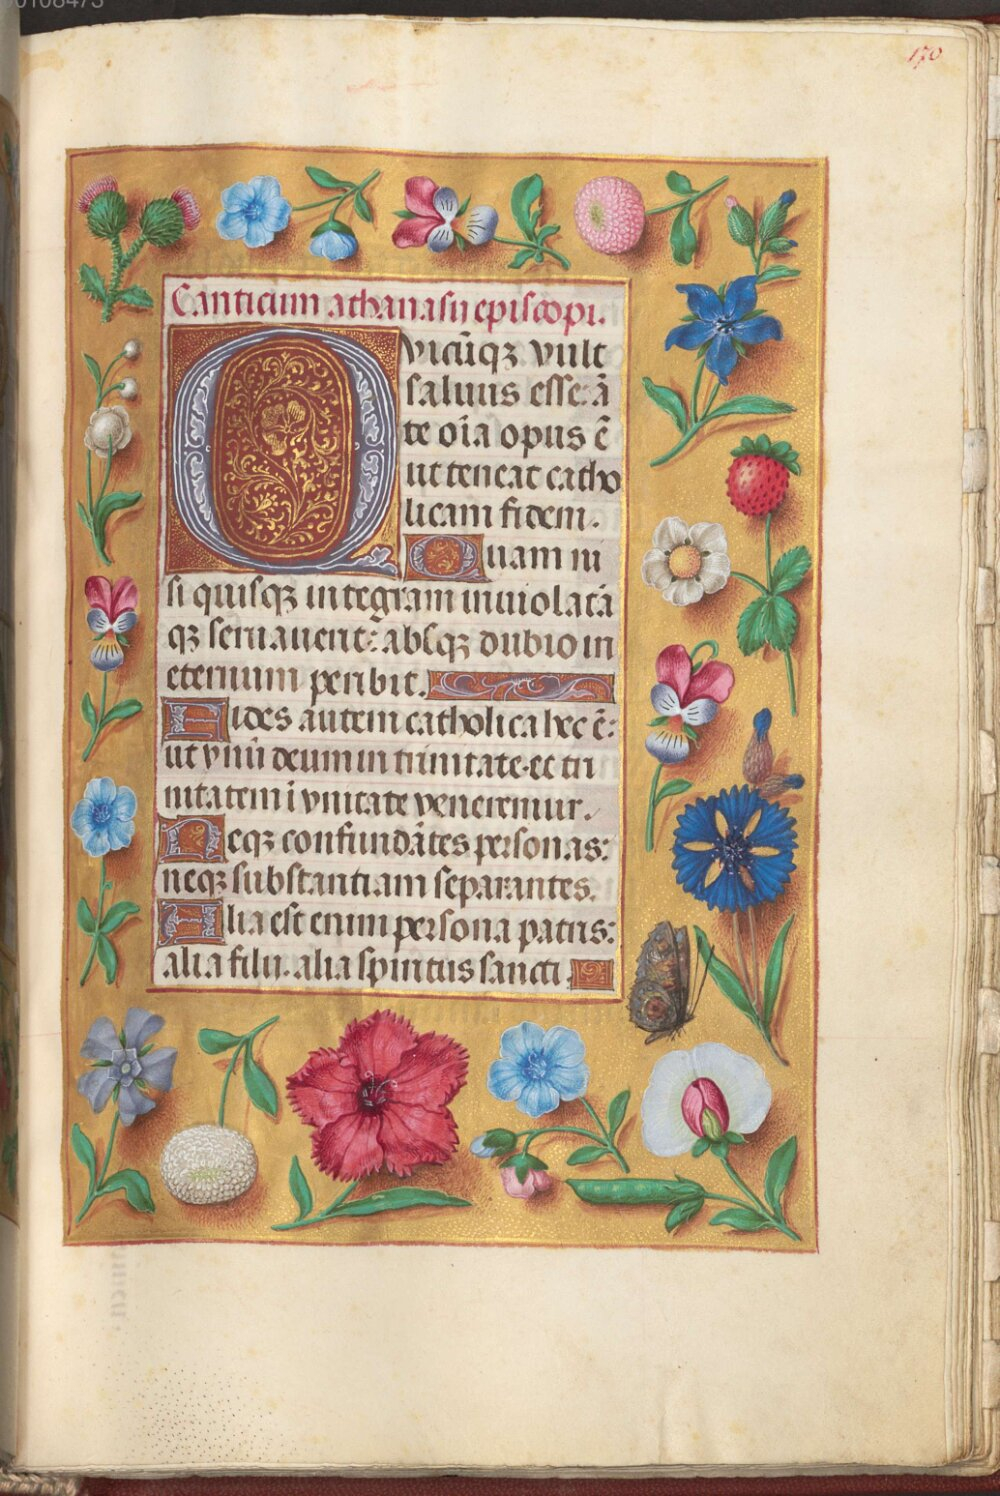 00108473
170
Canticum athanasii episcopi.
Quicūqꝫ vult
saluus esse: ā
te oīa opus ē
ut teneat catho
licam fidem.
Quam ni
si quisqꝫ integram inuiolatā
qꝫ seruauerit: absqꝫ dubio in
eternum peribit.
Fides autem catholica hec ē:
ut vnū deum in trinitate et tri
nitatem ī vnitate veneremur.
Neqꝫ confundātes personas:
neqꝫ substantiam separantes.
Alia est enim persona patris:
alia filii. alia spiritus sancti.